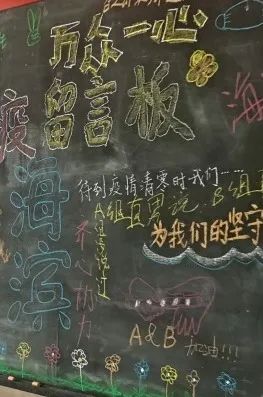 万众一心
疫
留言板
海
海滨
待到疫情清零时我们……
A组直男说
B组
为我们的坚守
齐心协力
A&B
加油!!!